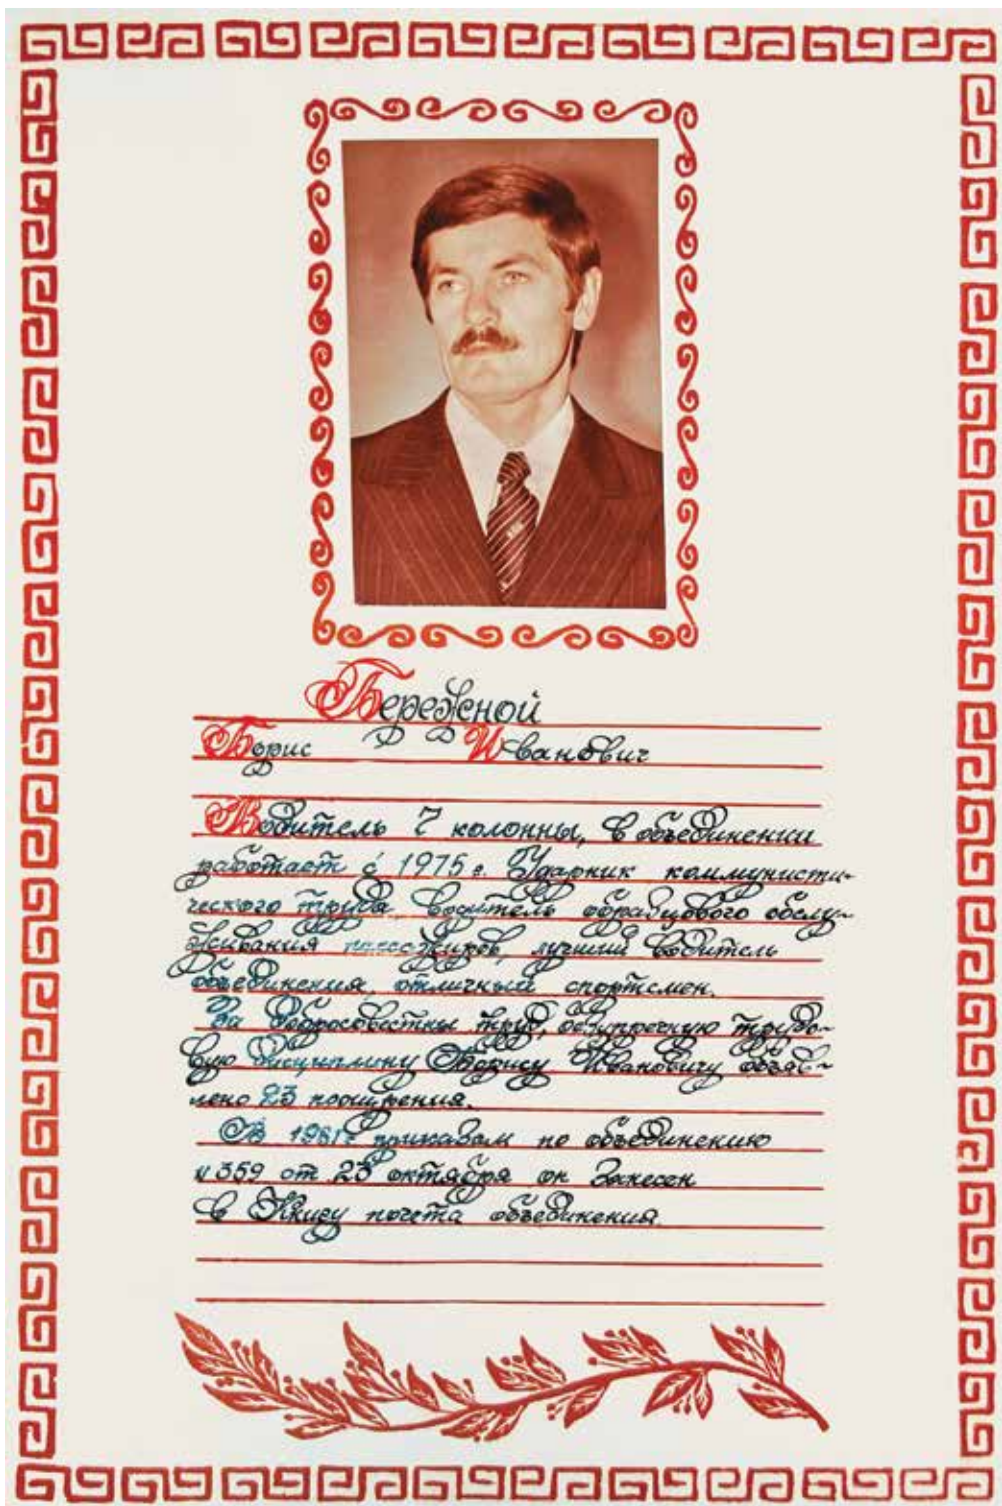 Бережной
Борис Иванович
Водитель 7 колонны, в объединении
работает с 1975 г. Ударник коммунисти-
ческого труда, водитель образцового обслу-
живания пассажиров, лучший водитель
объединения, отличный спортсмен.
За добросовестный труд, безупречную трудо-
вую дисциплину Борису Ивановичу объяв-
лено 23 поощрения.
В 1981 г. приказом по объединению
N 359 от 23 октября он занесен
в Книгу почета объединения.